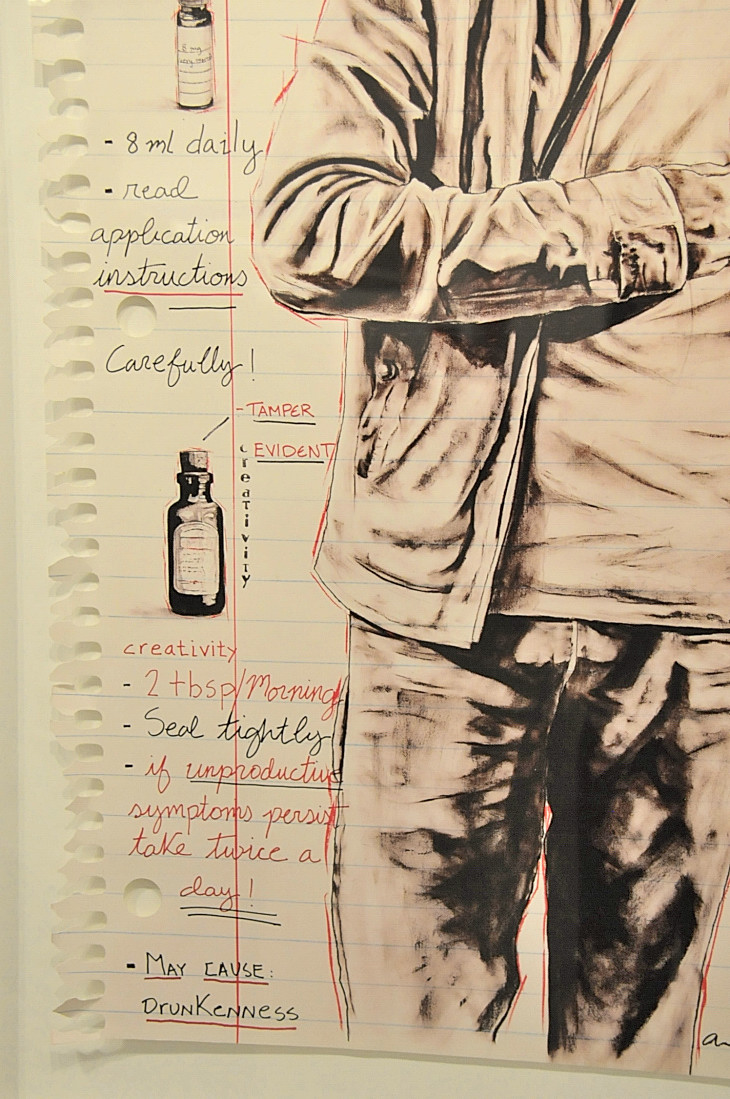 8 mg
- 8 ml daily
- read
application
instructions
Carefully!
- TAMPER
EVIDENT
creativity
creativity
- 2 tbsp/Morning
- Seal tightly
- if unproductive
symptoms persist
take twice a
day!
- MAY CAUSE:
DRUNKENNESS